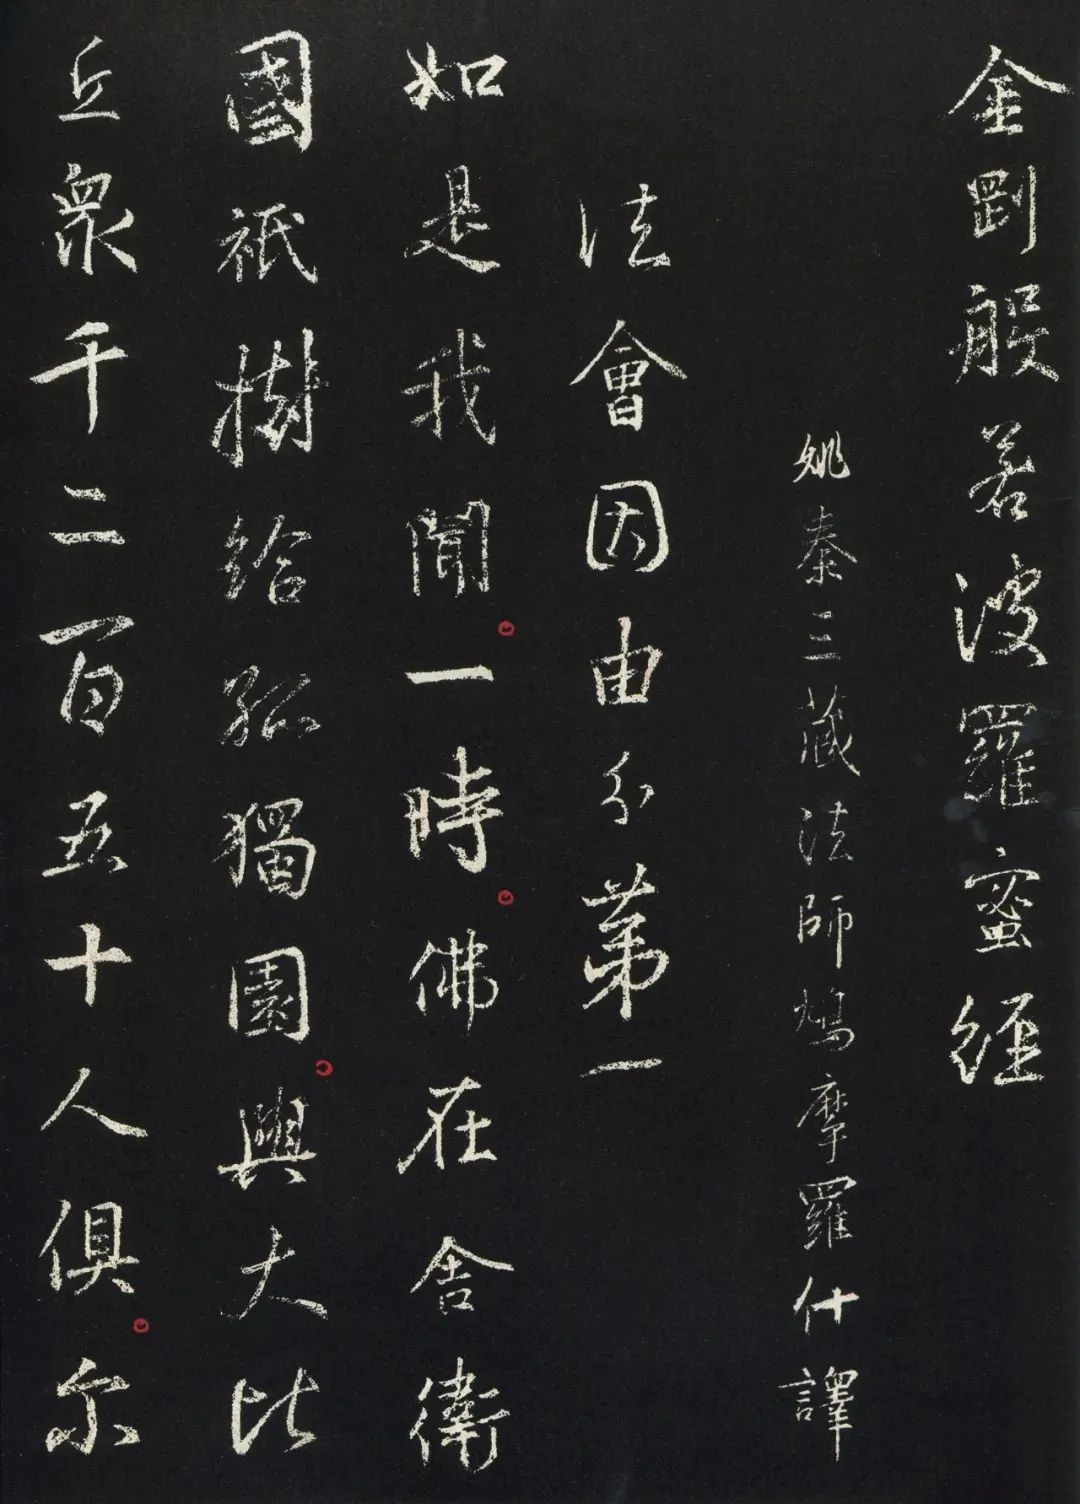 金剛般若波羅蜜經
姚秦三藏法師鳩摩羅什譯
法會因由分第一
如是我聞。一時。佛在舍衛
國祇樹給孤獨園。與大比
丘眾千二百五十人俱。尔